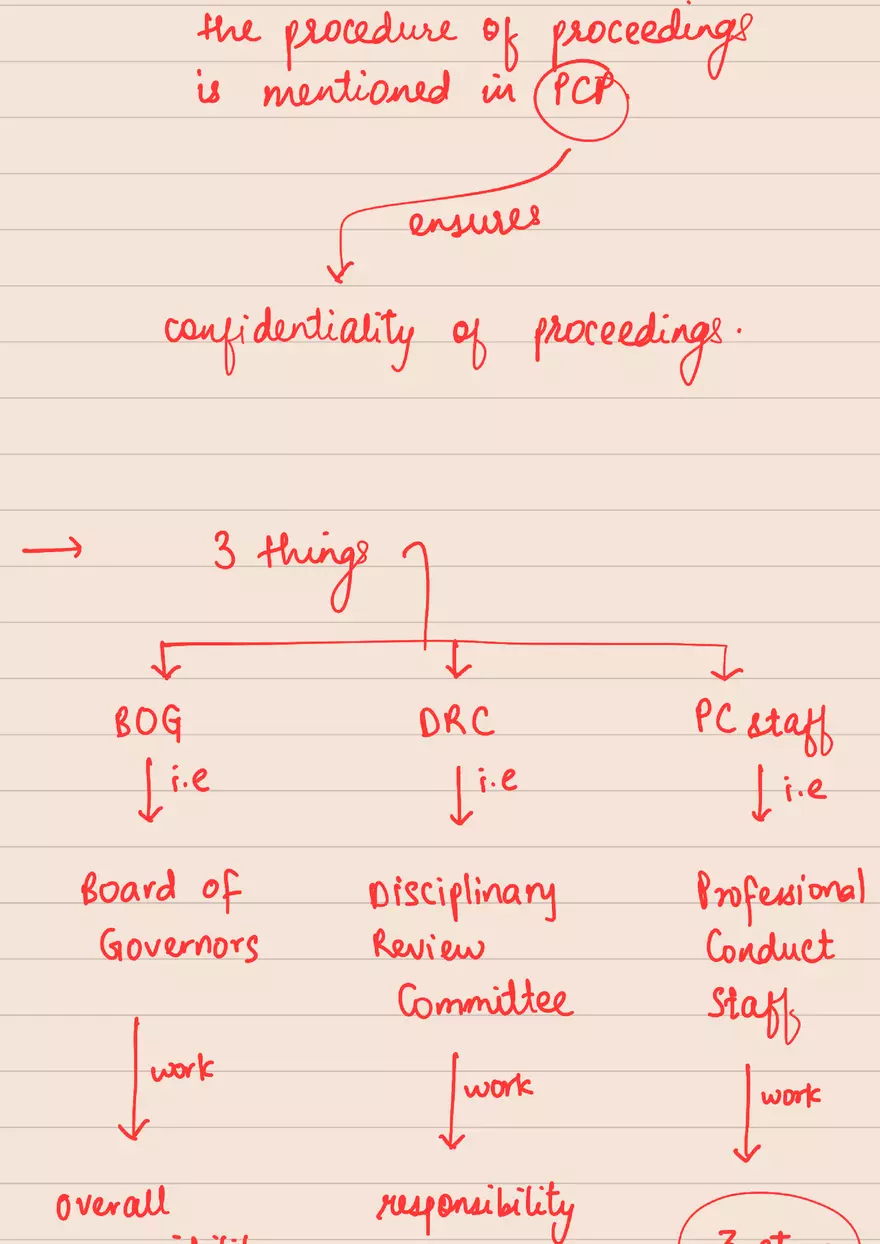 the procedure of proceedings
is mentioned in PCP.
ensures
confidentiality of proceedings.
→ 3 things
BOG DRC PC staff
i.e i.e i.e
Board of Disciplinary Professional
Governors Review Conduct
Committee Staff
work work work
overall responsibility
3